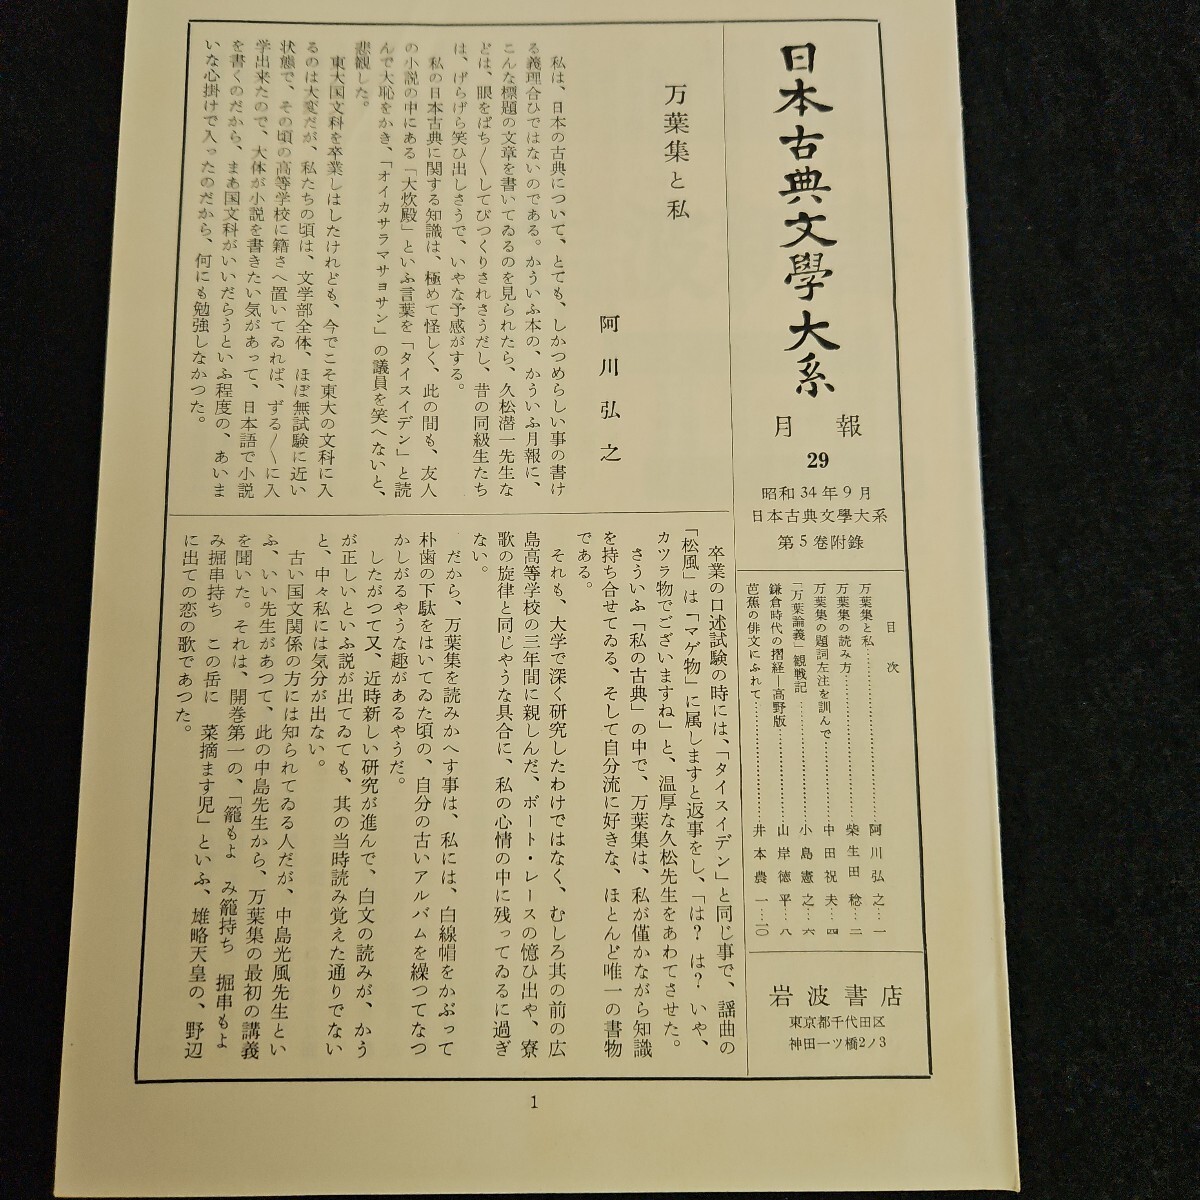 日本古典文學大系
月報
29
昭和34年9月
日本古典文學大系
第5巻附錄
目次
万葉集と私…………………………阿川弘之…一
万葉集の読み方……………………柴生田稔…二
万葉集の題詞左注を訓んで………中田祝夫…四
「万葉論義」観戦記………………小島憲之…六
鎌倉時代の摺経—高野版…………山岸徳平…八
芭蕉の俳文にふれて………………井本農一…一〇
岩波書店
東京都千代田区
神田一ツ橋2ノ3
万葉集と私
阿川弘之
私は、日本の古典について、とても、しかつめらしい事の書け
る義理合ひではないのである。かういふ本の、かういふ月報に、
こんな標題の文章を書いてゐるのを見られたら、久松潜一先生な
どは、眼をぱち〳〵してびつくりされさうだし、昔の同級生たち
は、げらげら笑ひ出しさうで、いやな予感がする。
私の日本古典に関する知識は、極めて怪しく、此の間も、友人
の小説の中にある「大炊殿」といふ言葉を「タイスイデン」と読
んで大恥をかき、「オイカサラマサヨサン」の議員を笑へないと、
悲観した。
東大国文科を卒業しはしたけれども、今でこそ東大の文科に入
るのは大変だが、私たちの頃は、文学部全体、ほぼ無試験に近い
状態で、その頃の高等学校に籍さへ置いてゐれば、ずる〳〵に入
学出来たので、大体が小説を書きたい気があって、日本語で小説
を書くのだから、まあ国文科がいいだらうといふ程度の、あいま
いな心掛けで入ったのだから、何にも勉強しなかつた。
卒業の口述試験の時には、「タイスイデン」と同じ事で、謡曲の
「松風」は「マゲ物」に属しますと返事をし、「は？ は？ いや、
カツラ物でございますね」と、温厚な久松先生をあわてさせた。
さういふ「私の古典」の中で、万葉集は、私が僅かながら知識
を持ち合せてゐる、そして自分流に好きな、ほとんど唯一の書物
である。
それも、大学で深く研究したわけではなく、むしろ其の前の広
島高等学校の三年間に親しんだ、ボート・レースの憶ひ出や、寮
歌の旋律と同じやうな具合に、私の心情の中に残ってゐるに過ぎ
ない。
だから、万葉集を読みかへす事は、私には、白線帽をかぶって
朴歯の下駄をはいてゐた頃の、自分の古いアルバムを繰つてなつ
かしがるやうな趣があるやうだ。
したがつて又、近時新しい研究が進んで、白文の読みが、かう
が正しいといふ説が出てゐても、其の当時読み覚えた通りでない
と、中々私には気分が出ない。
古い国文関係の方には知られてゐる人だが、中島光風先生とい
ふ、いい先生があつて、此の中島先生から、万葉集の最初の講義
を聞いた。それは、開巻第一の、「籠もよ　み籠持ち　掘串もよ
み掘串持ち　この岳に　菜摘ます児」といふ、雄略天皇の、野辺
に出ての恋の歌であつた。
1